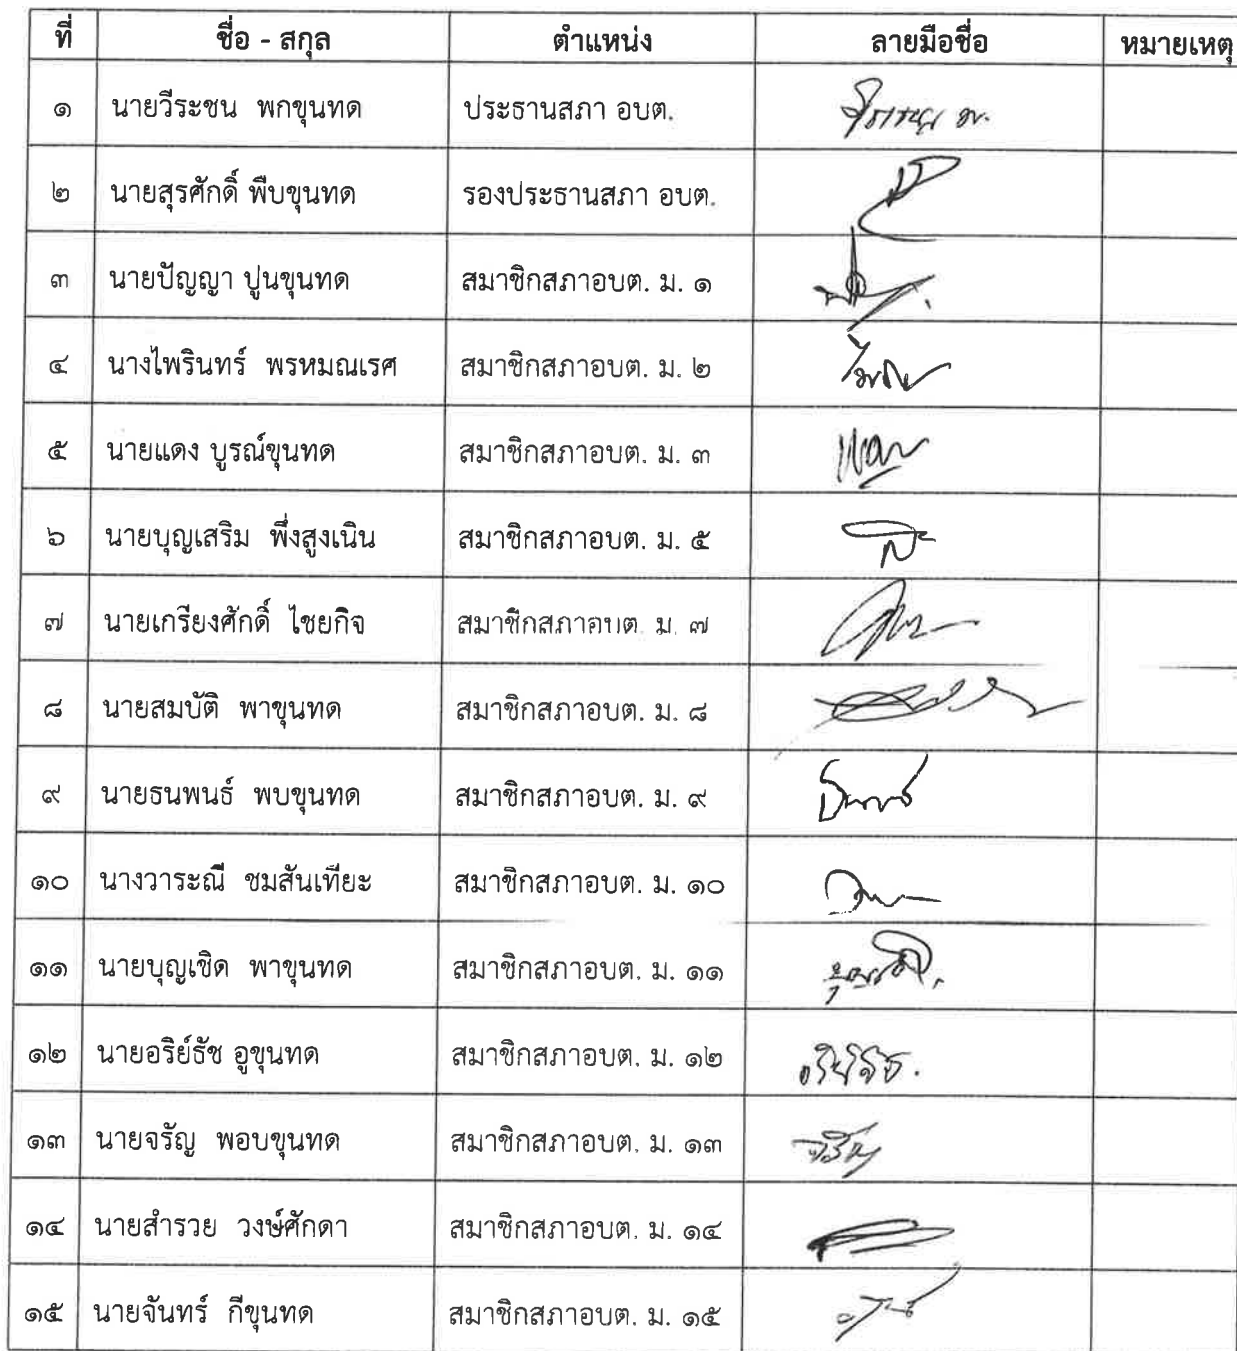 ที่ ชื่อ - สกุล ตำแหน่ง ลายมือชื่อ หมายเหตุ
๑ นายวีระชน พกขุนทด ประธานสภา อบต.
๒ นายสุรศักดิ์ พืบขุนทด รองประธานสภา อบต.
๓ นายปัญญา ปูนขุนทด สมาชิกสภาอบต. ม. ๑
๔ นางไพรินทร์ พรหมณเรศ สมาชิกสภาอบต. ม. ๒
๕ นายแดง บูรณ์ขุนทด สมาชิกสภาอบต. ม. ๓
๖ นายบุญเสริม พึ่งสูงเนิน สมาชิกสภาอบต. ม. ๕
๗ นายเกรียงศักดิ์ ไชยกิจ สมาชิกสภาอบต. ม. ๗
๘ นายสมบัติ พาขุนทด สมาชิกสภาอบต. ม. ๘
๙ นายธนพนธ์ พบขุนทด สมาชิกสภาอบต. ม. ๙
๑๐ นางวาระณี ชมสันเทียะ สมาชิกสภาอบต. ม. ๑๐
๑๑ นายบุญเชิด พาขุนทด สมาชิกสภาอบต. ม. ๑๑
๑๒ นายอริย์ธัช อูขุนทด สมาชิกสภาอบต. ม. ๑๒
๑๓ นายจรัญ พอบขุนทด สมาชิกสภาอบต. ม. ๑๓
๑๔ นายสำรวย วงษ์ศักดา สมาชิกสภาอบต. ม. ๑๔
๑๕ นายจันทร์ กีขุนทด สมาชิกสภาอบต. ม. ๑๕